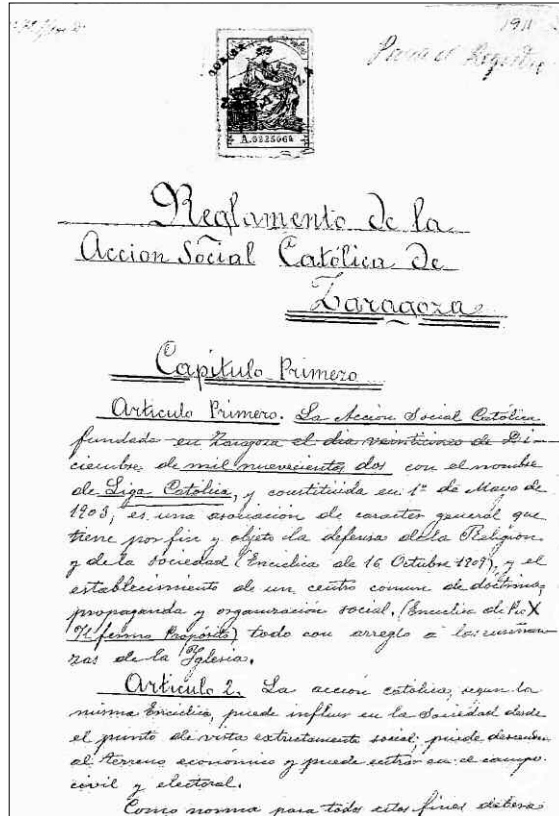 1911
Para el Registro
A.0225064
Reglamento de la
Accion Social Católica de
Zaragoza
Capítulo Primero
Articulo Primero. La Acción Social Católica
fundada en Zaragoza el dia veinticinco de Di-
ciembre de mil nuevecientos dos con el nombre
de Liga Católica, y constituida en 1º de Mayo de
1903, es una asociación de caracter general que
tiene por fin y objeto la defensa de la Religion
y de la sociedad (Enciclica de 16 Octubre 1907), y el
establecimiento de un centro comun de doctrina,
propaganda y organización social, (Enciclica de Pio X
Il fermo Propósito) todo con arreglo a las enseñan-
zas de la Iglesia.
Articulo 2. La acción católica, segun la
misma Enciclica, puede influir en la Sociedad desde
el punto de vista extrictamente social, puede descender
al terreno económico y puede entrar en el campo
civil y electoral.
Como norma para todos estos fines deberá